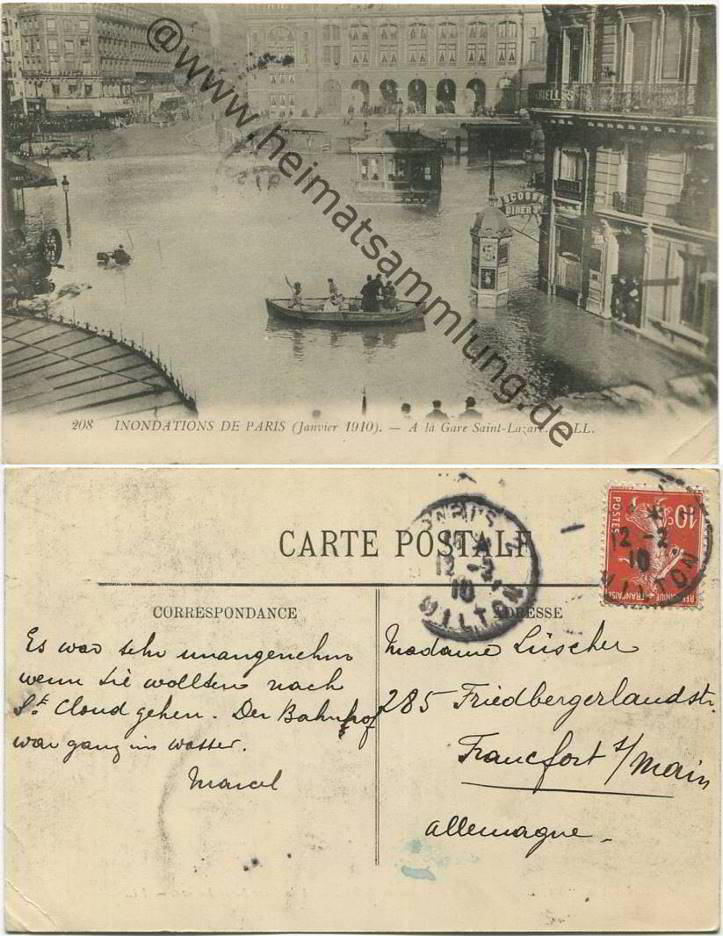 @www.heimatsammlung.de
208 INONDATIONS DE PARIS (Janvier 1910). — A la Gare Saint-Lazare. — LL.
CARTE POSTALE
PARIS
12 - 2
10
MILTON
12 - 2
10
MILTON
10c
POSTES
CORRESPONDANCE
ADRESSE
Es war sehr unangenehm
wenn Sie wollten nach
St. Cloud gehen. Der Bahnhof
war ganz im wasser.
Marcel
Madame Lüscher
285 Friedbergerlandstr.
Francfort s/Main
Allemagne.